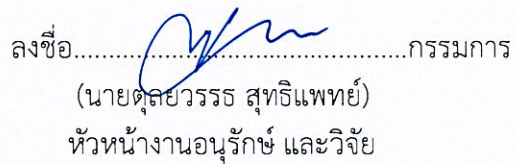 ลงชื่อ........................................กรรมการ
(นายตุลยวรรธ สุทธิแพทย์)
หัวหน้างานอนุรักษ์ และวิจัย